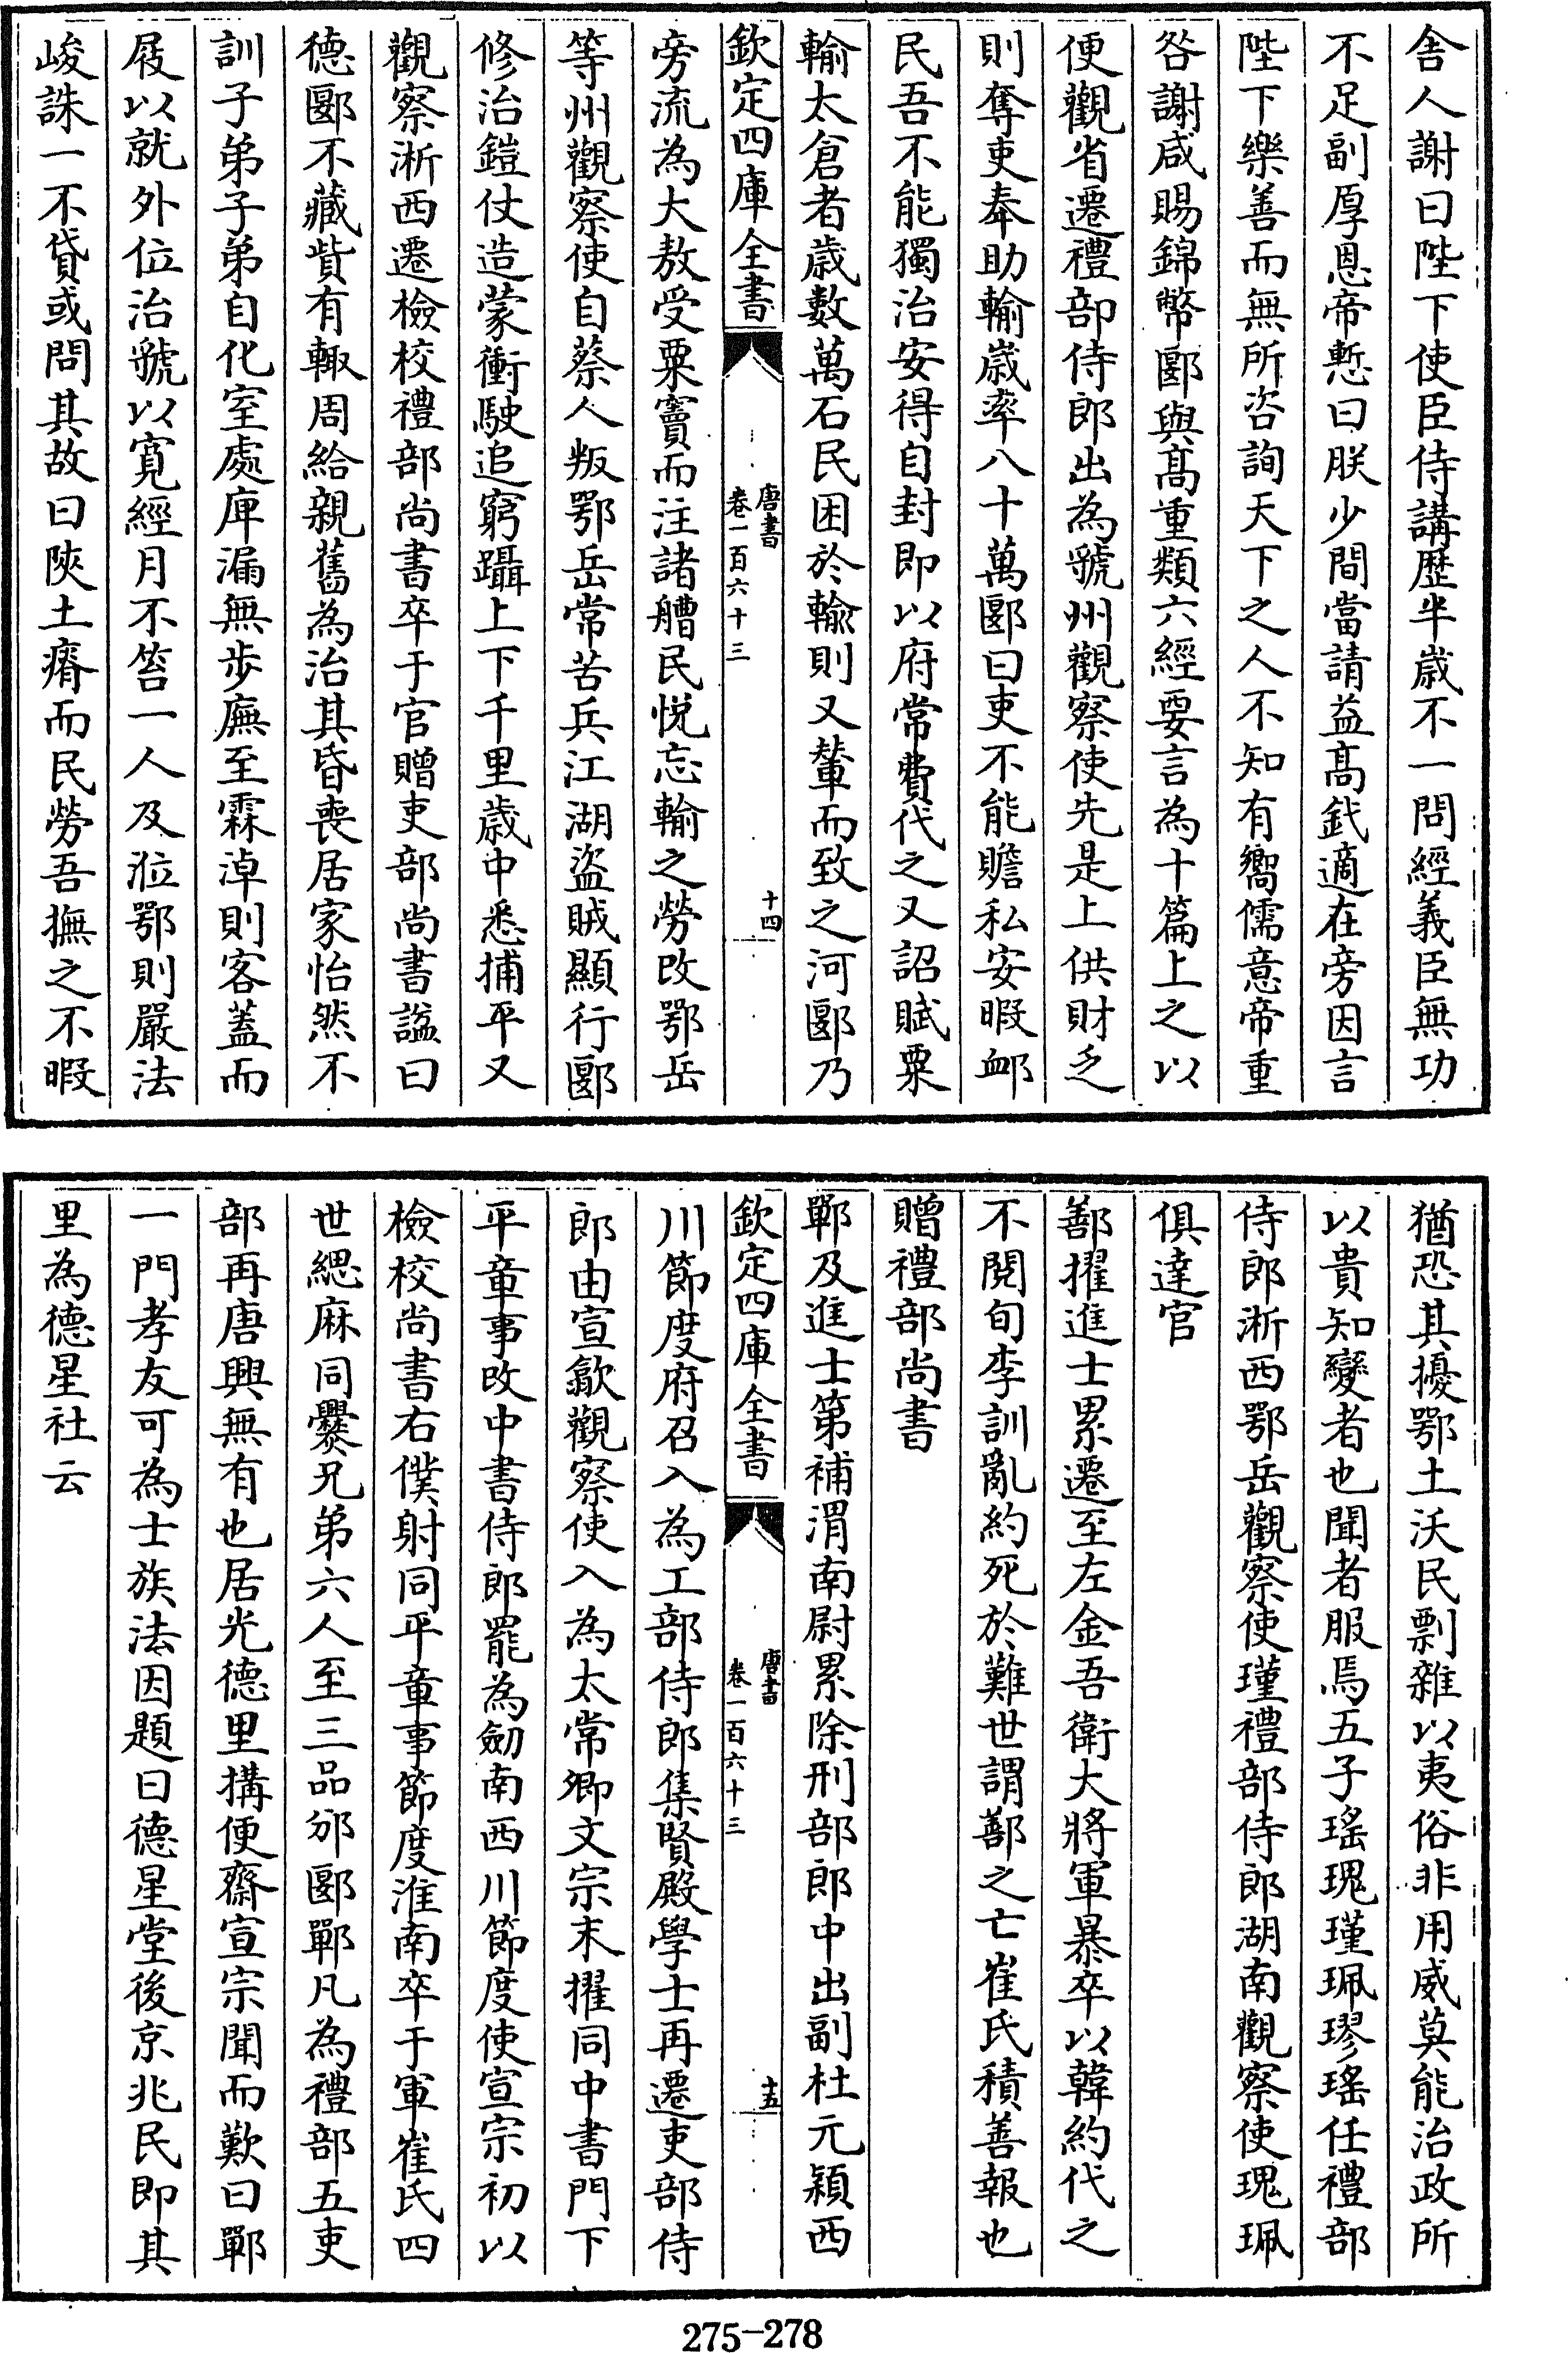 舎人謝曰陛下使臣侍講歴半歳不一問經義臣無功
不足副厚恩帝慙曰朕少間當請益髙釴適在旁因言
陛下樂善而無所咨詢天下之人不知有嚮儒意帝重
咎謝咸賜錦幣郾與髙重類六經要言為十篇上之以
便觀省遷禮部侍郎出為虢州觀察使先是上供財乏
則奪吏奉助輸歳率八十萬郾曰吏不能贍私安暇卹
民吾不能獨治安得自封即以府常費代之又詔賦粟
輸太倉者歳數萬石民困於輸則又輦而致之河郾乃
欽定四庫全書
唐書
卷一百六十三
十四
旁流為大敖受粟竇而注諸艚民悦忘輸之勞改鄂岳
等州觀察使自蔡人叛鄂岳常苦兵江湖盜賊顯行郾
修治鎧仗造蒙衝駛追窮躡上下千里歳中悉捕平又
觀察淅西遷檢校禮部尚書卒于官贈吏部尚書諡曰
德郾不藏貲有輙周給親舊為治其昏喪居家怡然不
訓子弟子弟自化室處庳漏無歩廡至霖淖則客蓋而
屐以就外位治虢以寛經月不笞一人及涖鄂則嚴法
峻誅一不貸或問其故曰陜土瘠而民勞吾撫之不暇
猶恐其擾鄂土沃民剽雜以夷俗非用威莫能治政所
以貴知變者也聞者服焉五子瑤瑰瑾珮璆瑤任禮部
侍郎淅西鄂岳觀察使瑾禮部侍郎湖南觀察使瑰珮
俱達官
鄯擢進士累遷至左金吾衛大將軍暴卒以韓約代之
不閱旬李訓亂約死於難世謂鄯之亡崔氏積善報也
贈禮部尚書
鄲及進士第補渭南尉累除刑部郎中出副杜元穎西
欽定四庫全書
唐書
卷一百六十三
十五
川節度府召入為工部侍郎集賢殿學士再遷吏部侍
郎由宣歙觀察使入為太常卿文宗末擢同中書門下
平章事改中書侍郎罷為劒南西川節度使宣宗初以
檢校尚書右僕射同平章事節度淮南卒于軍崔氏四
世緦麻同㸑兄弟六人至三品邠郾鄲凡為禮部五吏
部再唐興無有也居光德里搆便齋宣宗聞而歎曰鄲
一門孝友可為士族法因題曰德星堂後京兆民即其
里為德星社云
275-278